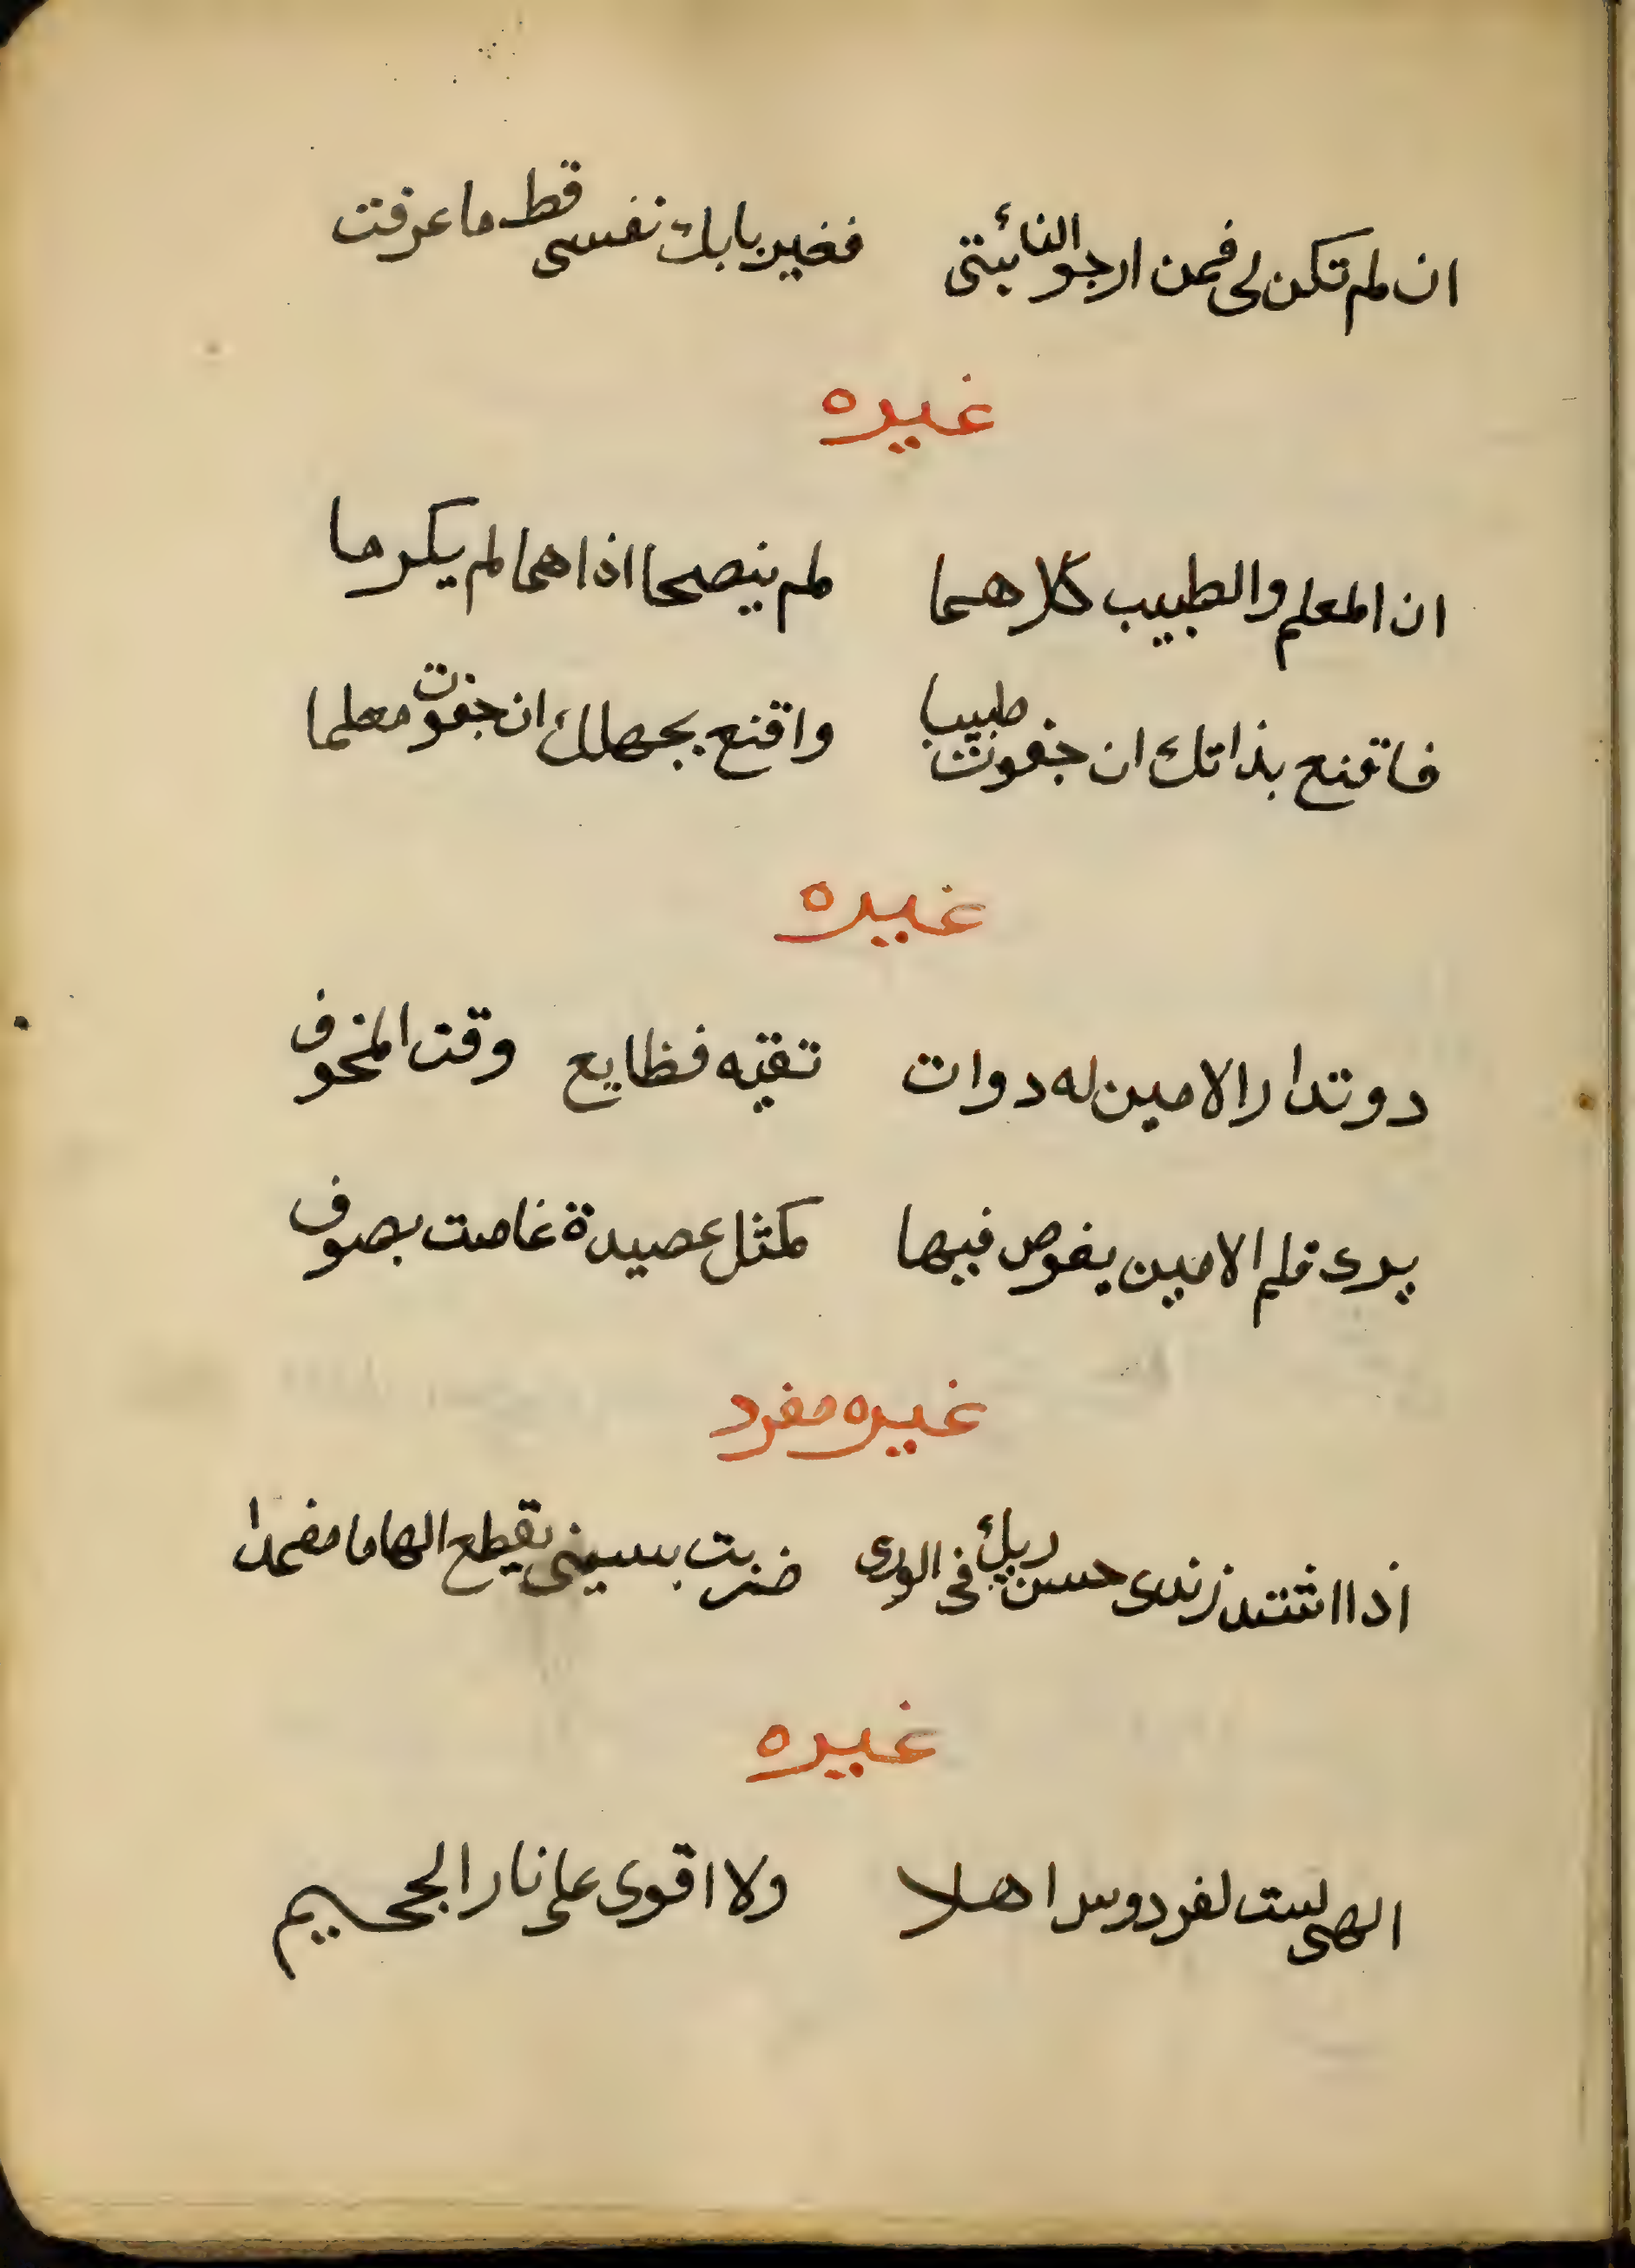 ان لم تكن لى فمن ارجو النائبتى فغير بابك نفسى قط ما عرفت
غيره
ان المعلم والطبيب كلاهما لم ينصحا اذا هما لم يكرما
فاقنع بذاتك ان جفوت طبيبا واقنع بجهلك ان جفوت معلما
غيره
دوتدار الامين له دوات تقيه فظايع وقت المخوف
يرى قلم الامين يغوص فيها كمثل عصيدة غاصت بصوف
غيره مفرد
اذا اشتد زندى حسن فى الورى ضربت بسيفى يقطع الهاما مغمدا
غيره
الهى لست لفردوس اهلا ولا اقوى على نار الجحيم